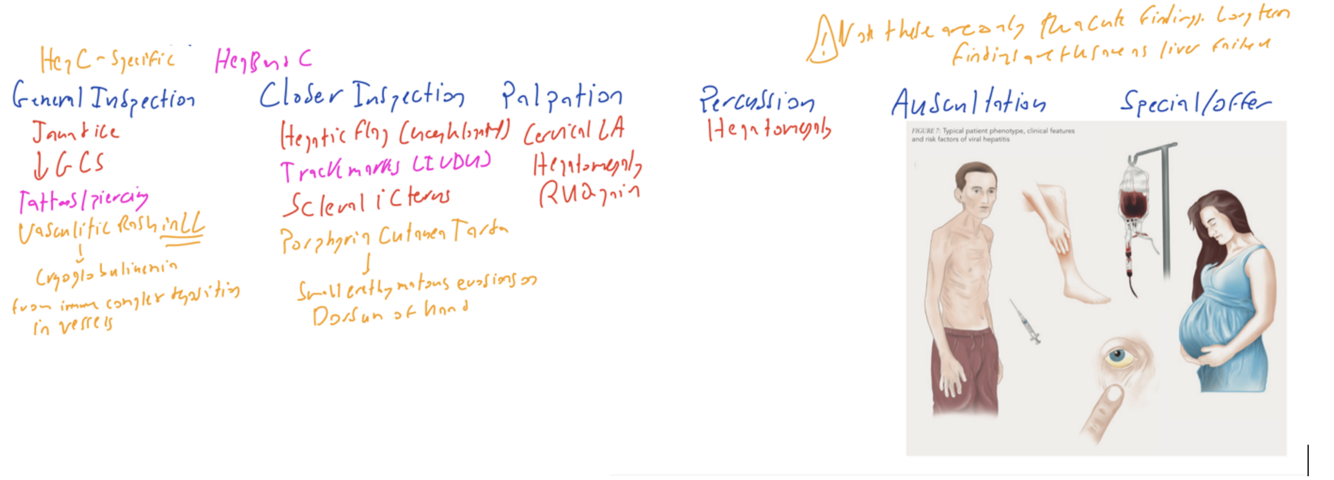 ⚠ Note these are only the acute findings. Long term
findings are the same as liver failure
Hep C - Specific
Hep B and C
General Inspection
Jaundice
↓GCS
Tattoos/piercing
Vasculitic Rash in LL
↓
Cryoglobulinemia
from immune complex deposition
in vessels
Closer Inspection
Hepatic Flap (encephalopathy)
Trackmarks (IVDU)
Scleral icterus
Porphyria Cutanea Tarda
↓
Small erythymatous erosions on
Dorsum of hand
Palpation
Cervical LA
Hepatomegaly
RUQ pain
Percussion
Hepatomegaly
Auscultation
Special/offer
FIGURE 7: Typical patient phenotype, clinical features
and risk factors of viral hepatitis